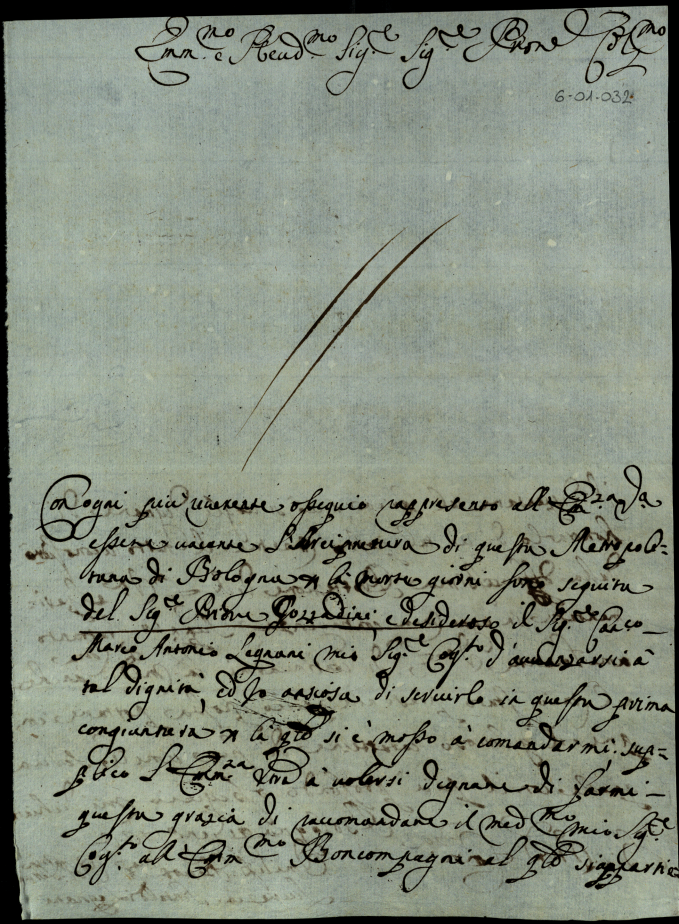 Emm.mo e Reud.mo Sig.e Sig.e Prone Col.mo
6-01-032
Con ogni piu' riuerente ossequio rappresento all' Em.za V.a
essere uacante l'Arcipretura di questa Metropoli=
tana di Bologna p la morte giorni sono seguita
del Sig.e Priore Gozzadini, e desideroso il Sig.e Can.co
Marco Antonio Legnani mio Sig.e Cog.to d'auuanzarsi à
tal dignità, ed Io ansiosa di seruirlo in questa prima
congiuntura, p la q.le si è mosso à comandarmi, sup=
plico l'Em.za Vra à uolersi degnare di farmi
questa grazia di raccomandare il med.mo mio Sig.e
Cog.to all' Emm.mo Boncompagni al q.le s'appartie=